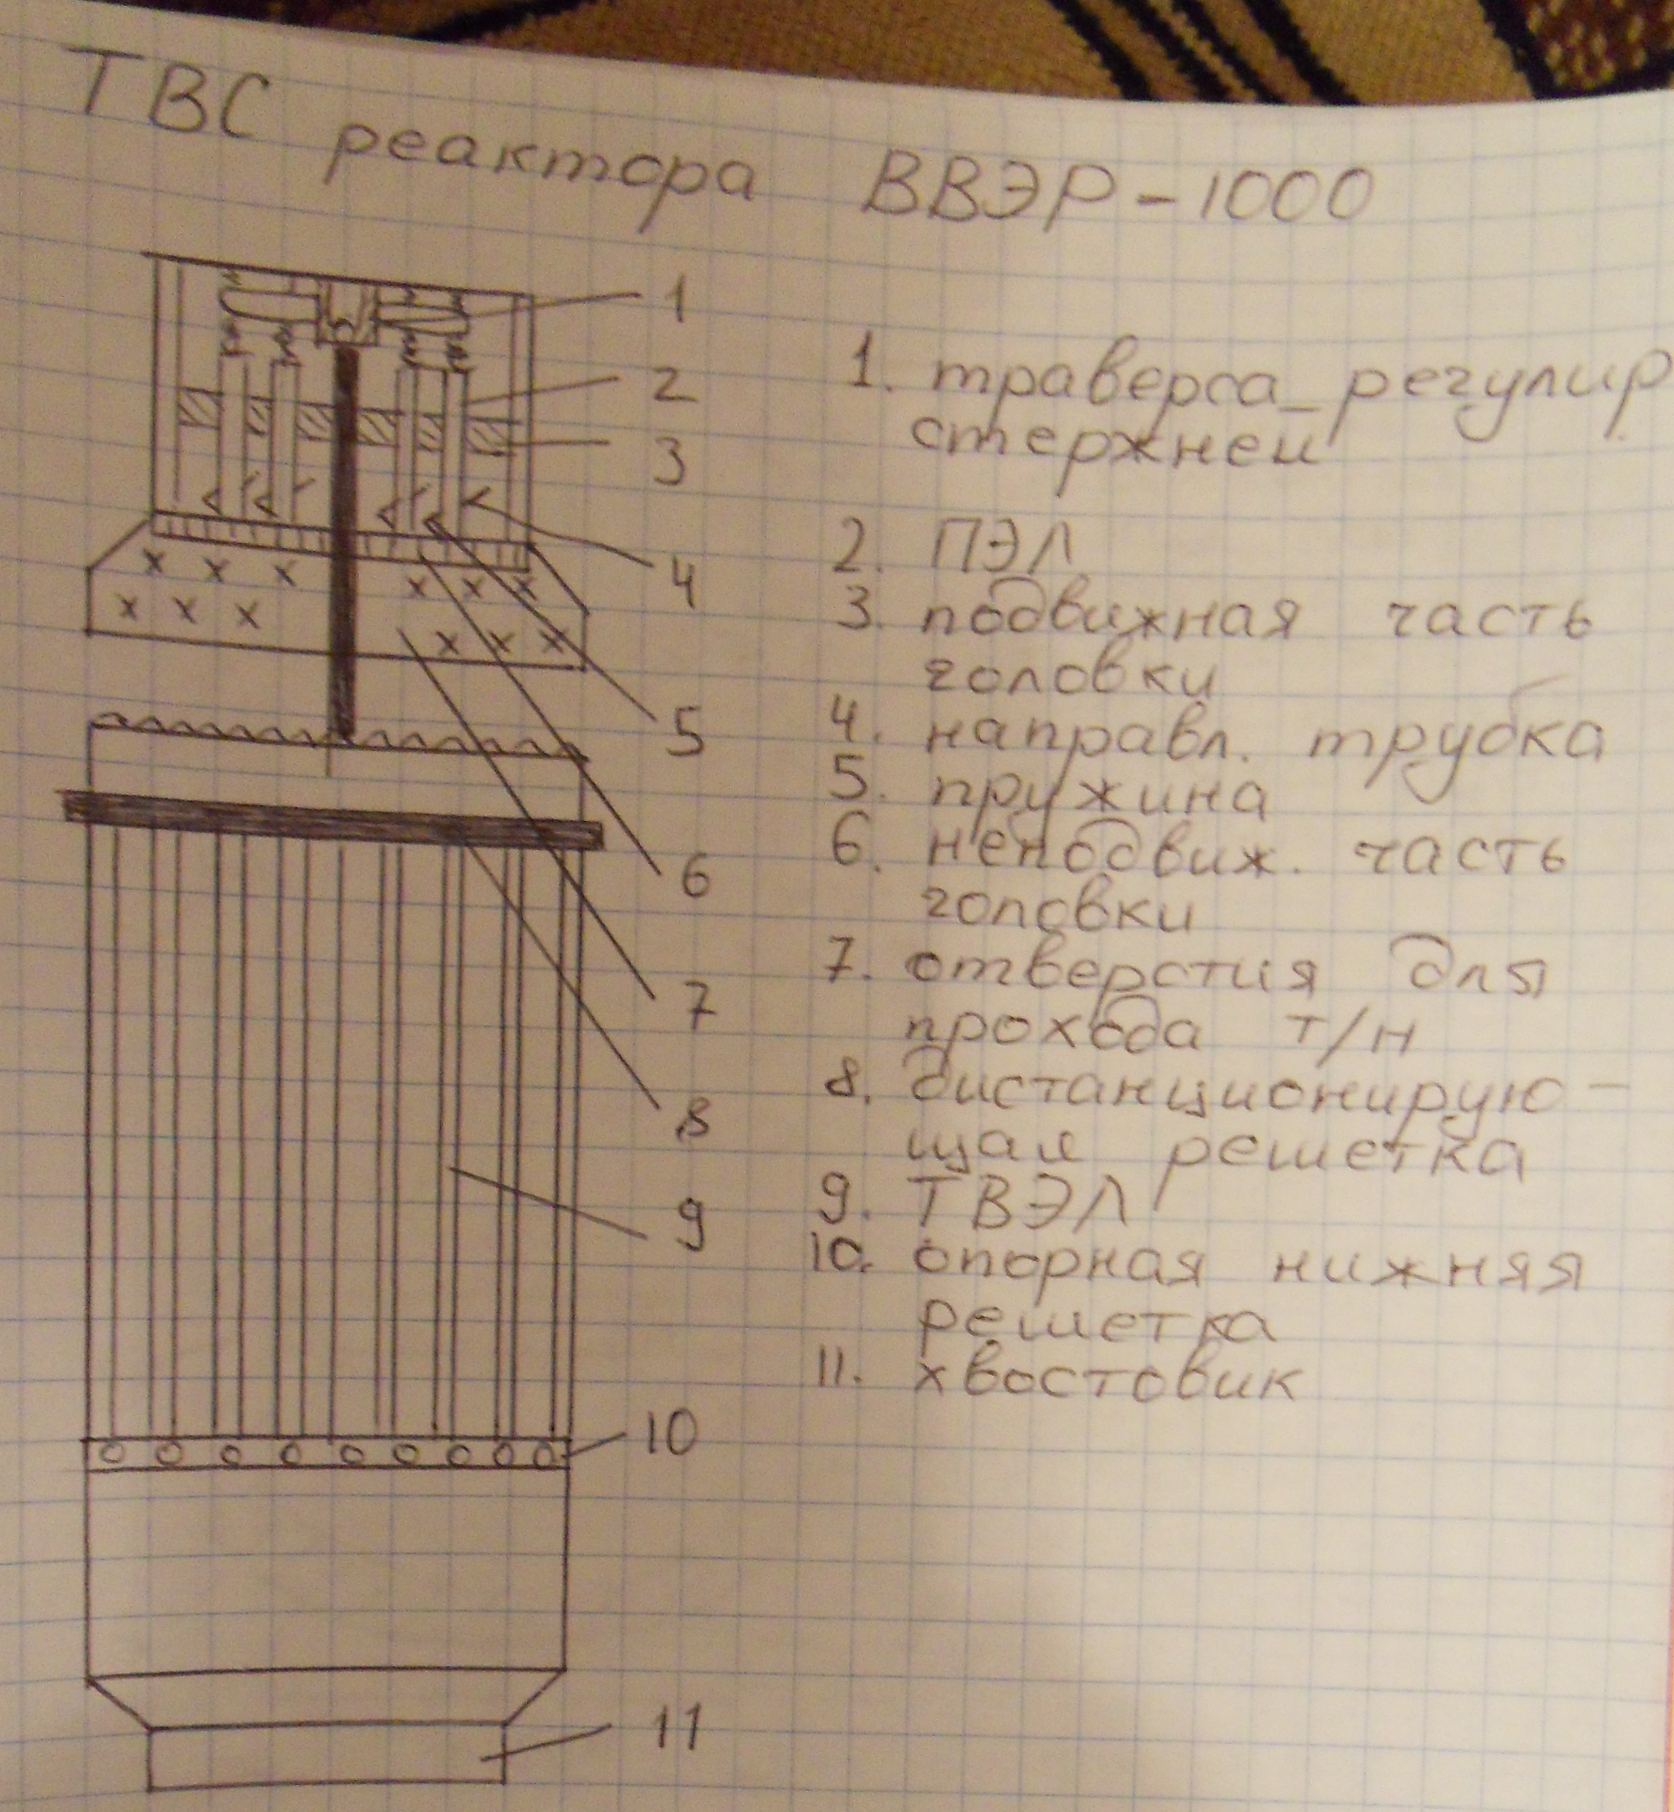 ТВС реактора ВВЭР-1000
1
2
3
4
5
6
7
8
9
10
11
1. траверса регулир
стержней
2. ПЭЛ
3. подвижная часть
головки
4. направл. трубка
5. пружина
6. неподвиж. часть
головки
7. отверстия для
прохода т/н
8. дистанционирую-
щая решетка
9. ТВЭЛ
10. опорная нижняя
решетка
11. хвостовик